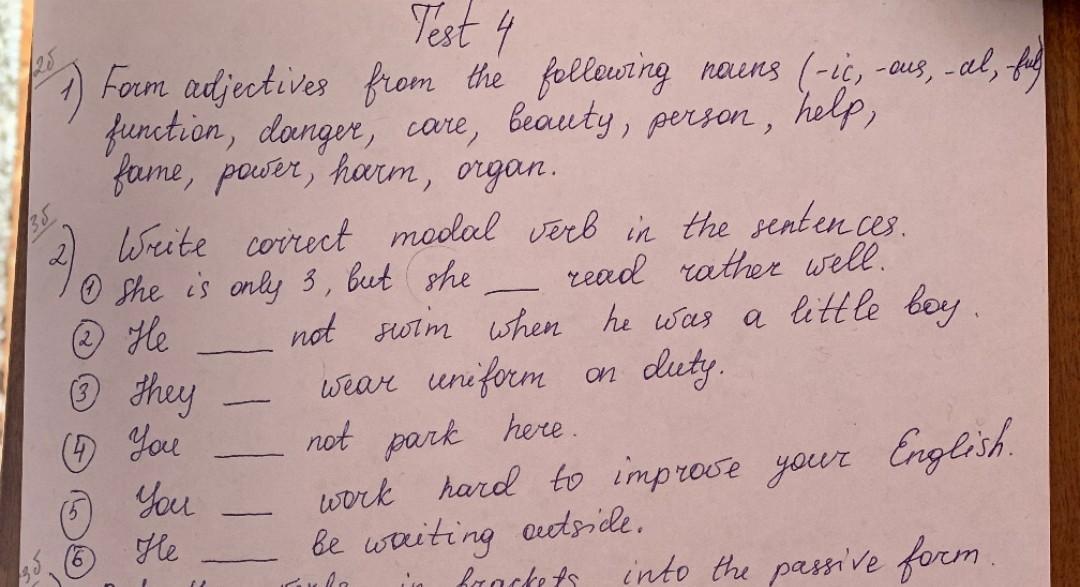 Test 4
2б
1) Form adjectives from the following nouns (-ic, -ous, -al, -ful)
function, danger, care, beauty, person, help,
fame, power, harm, organ.
3б
2) Write correct modal verb in the sentences.
① She is only 3, but she ___ read rather well.
② He ___ not swim when he was a little boy.
③ They ___ wear uniform on duty.
④ You ___ not park here.
⑤ You ___ work hard to improve your English.
⑥ He ___ be waiting outside.
3б
verbs in brackets into the passive form.